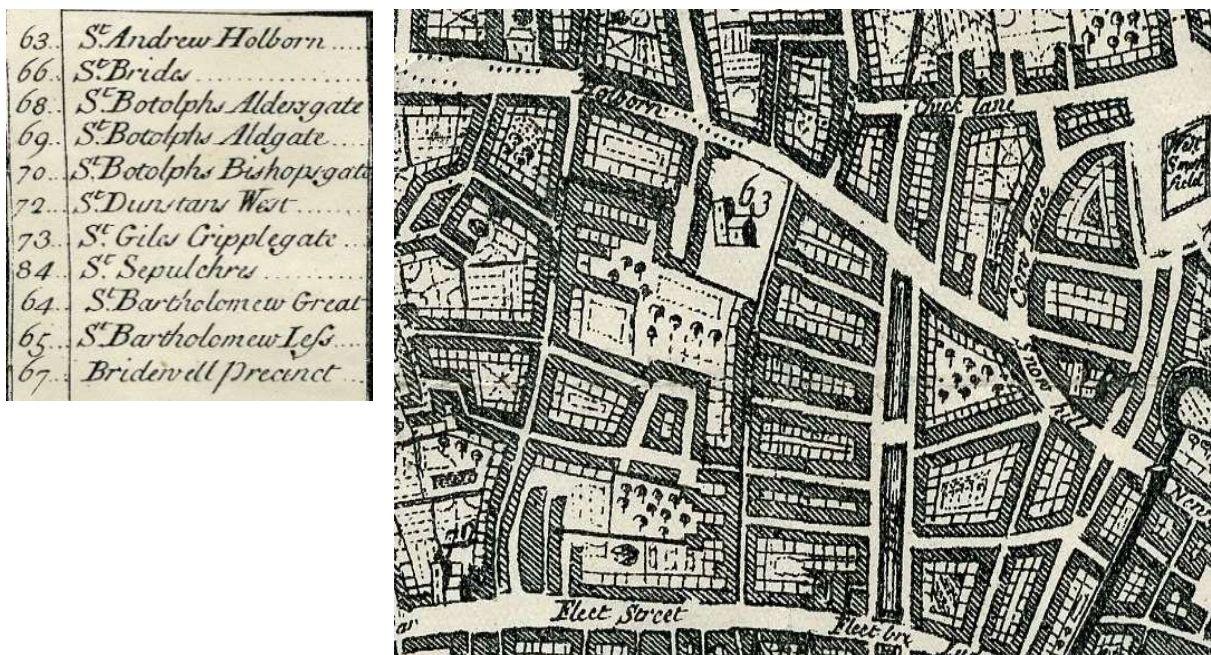 63.. St. Andrew Holborn .....
66.. St. Brides ..............
68.. St. Botolphs Aldersgate
69.. St. Botolphs Aldgate ....
70.. St. Botolphs Bishopsgate
72.. St. Dunstans West .......
73.. St. Giles Cripplegate ...
84.. St. Sepulchres ..........
64.. St. Bartholomew Great
65.. St. Bartholomew Less ....
67.. Bridewell Precinct ...
Holborn
Chick lane
West Smith field
63
Cow Lane
Snow hill
New
Fleet Street
Fleet bri
ar